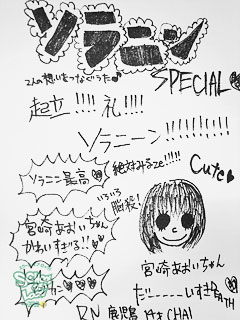 ソラニン
2人の想いをつなぐうた
SPECIAL
起立!!!! 礼!!!!
ソラニーン!!!!!!!!!
絶対みるze!!!!!
Cute
ソラニン最高
いろいろ
脳殺!
宮崎あおいちゃん
かわいすぎる!!
宮崎あおいちゃん
だーーーーいすき
RN 鹿児島 CHAI